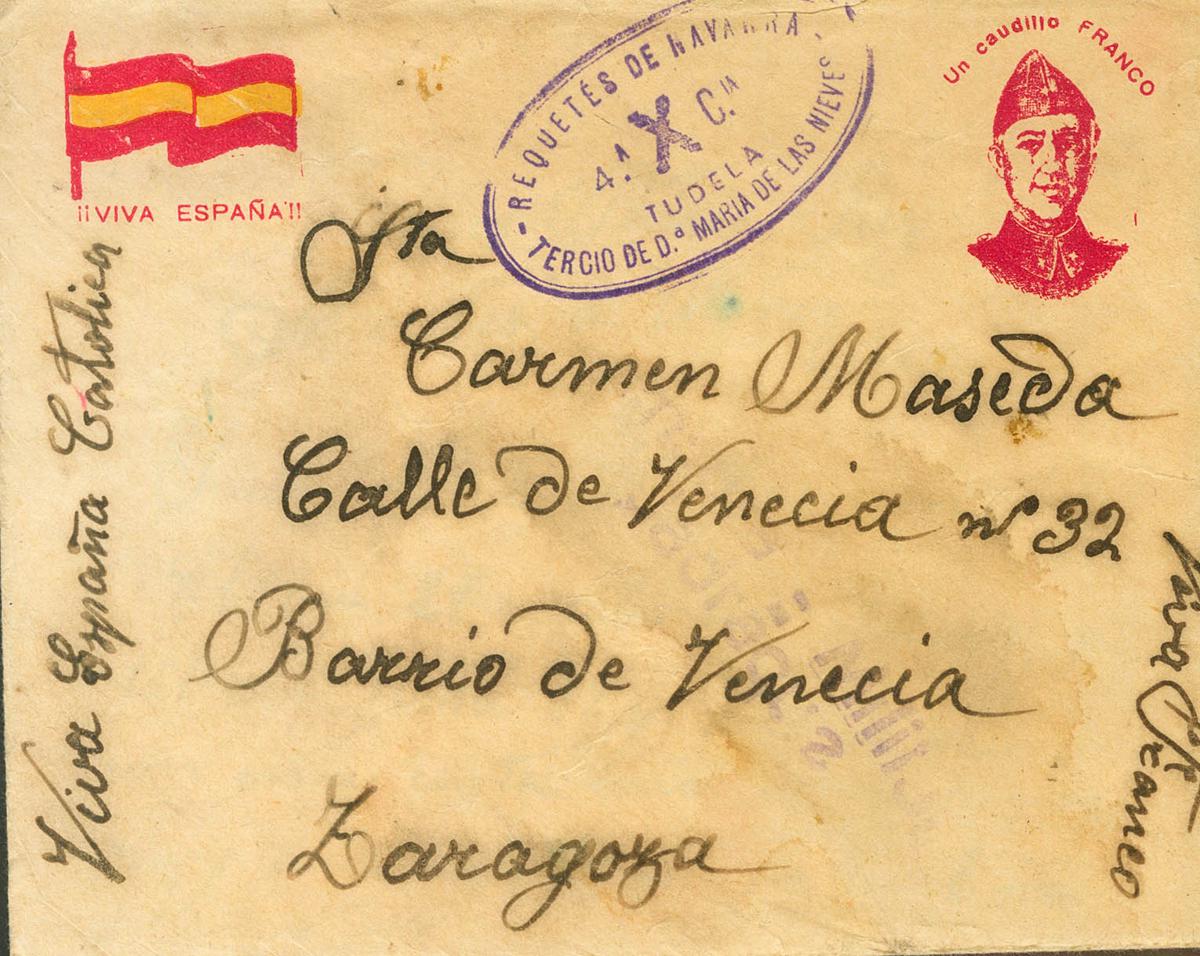 ¡¡VIVA ESPAÑA!!
REQUETÉS DE NAVARRA
4.ª C.ª
TUDELA
TERCIO DE D.ª MARIA DE LAS NIEVES
Un caudillo FRANCO
Sta
Carmen Maseda
Calle de Venecia nº 32
Barrio de Venecia
Zaragoza
Viva España Catolica
Viva
Franco